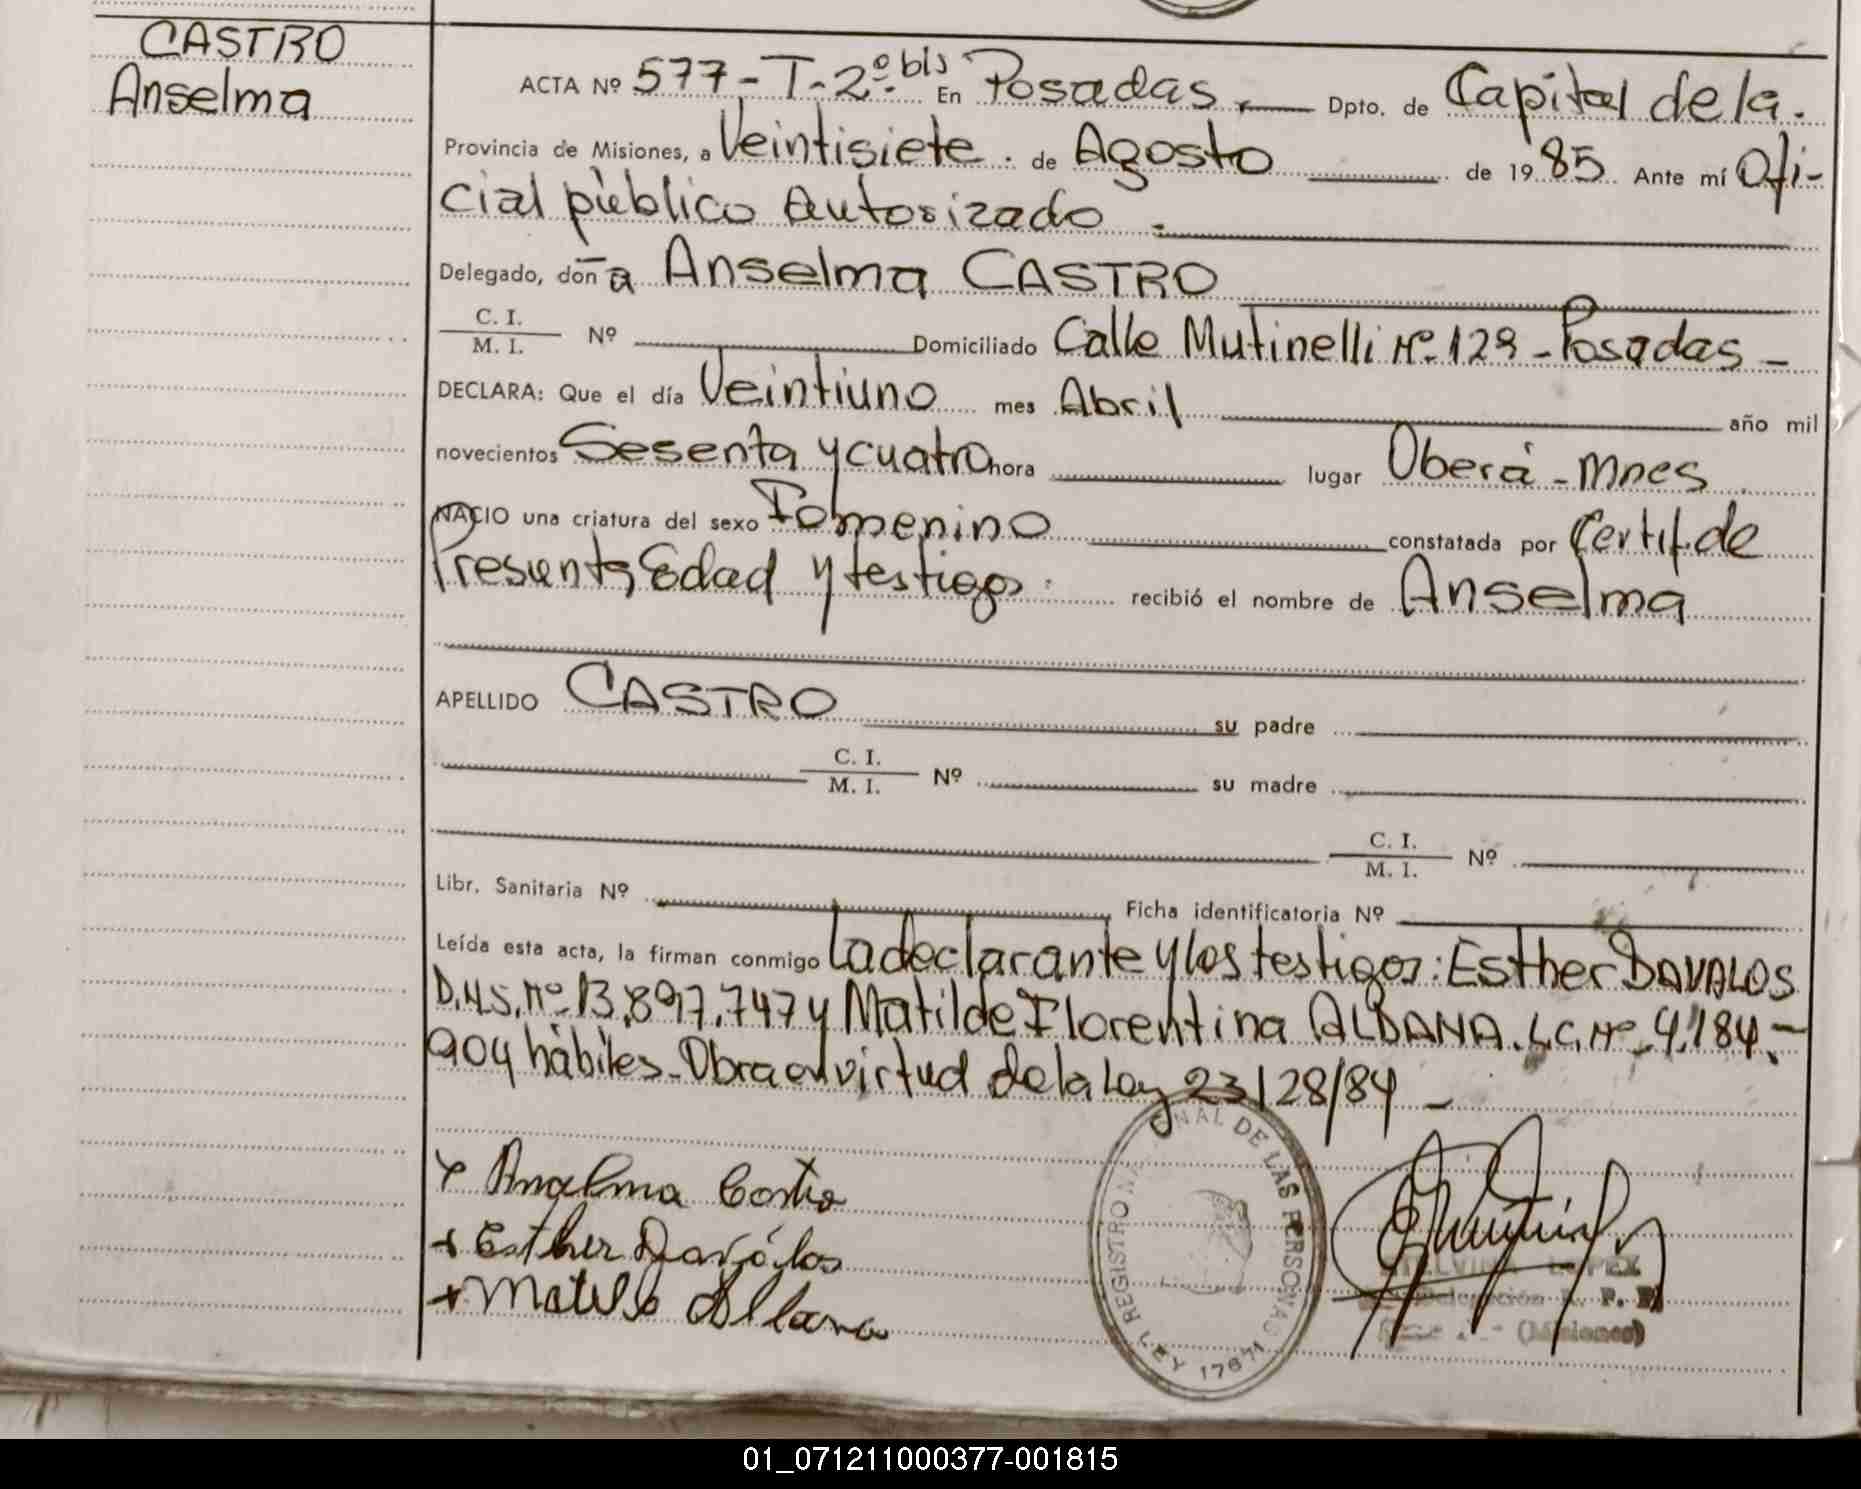 CASTRO
Anselma
ACTA Nº 577-T-2º bis En Posadas. Dpto. de Capital de la.
Provincia de Misiones, a Veintisiete. de Agosto de 1985 Ante mí Ofi-
cial público Autorizado.
Delegado, doña Anselma CASTRO
C. I.
M. I. Nº Domiciliado Calle Mutinelli Nº 129 - Posadas -
DECLARA: Que el día Veintiuno mes Abril año mil
novecientos Sesenta y cuatro hora lugar Oberá - Mnes
NACIO una criatura del sexo Femenino constatada por Certif. de
Presunta Edad y testigos. recibió el nombre de Anselma
APELLIDO CASTRO su padre
C. I.
M. I. Nº su madre
C. I.
M. I. Nº
Libr. Sanitaria Nº Ficha identificatoria Nº
Leída esta acta, la firman conmigo La declarante y los testigos: Esther DAVALOS
Nº 13.897.747 y Matilde Florentina ALDANA. L.C. Nº 4.184.-
904 hábiles - Obra en virtud de la Ley 23128/84 -
Anselma Castro
Esther Daválos
Matilde Aldana
REGISTRO NAL DE LAS PERSONAS
LEY 17671
Delegación R. P.
(Misiones)
01_071211000377-001815